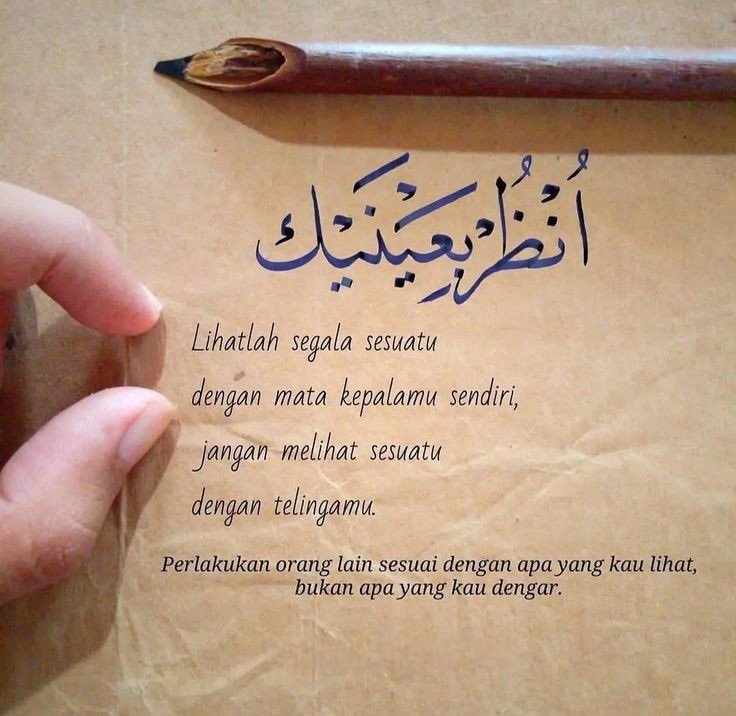 اُنْظُرْ بِعَيْنَيْكَ
Lihatlah segala sesuatu
dengan mata kepalamu sendiri,
jangan melihat sesuatu
dengan telingamu.
Perlakukan orang lain sesuai dengan apa yang kau lihat,
bukan apa yang kau dengar.